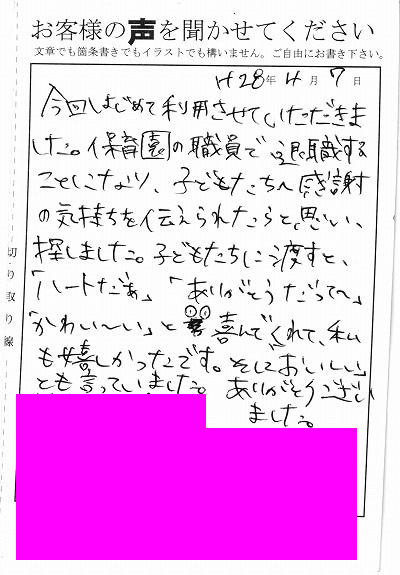 お客様の声を聞かせてください
文章でも箇条書きでもイラストでも構いません。ご自由にお書き下さい。
H28年4月7日
今回はじめて利用させていただきま
した。保育園の職員で退職する
ことになり、子どもたちへ感謝
の気持ちを伝えられたらと思い、
探しました。子どもたちに渡すと、
「ハートだぁ」「ありがとうだって〜」
「かわい〜い」と喜んでくれて、私
も嬉しかったです。そして「おいしい」
とも言っていました。ありがとうござい
ました。
切り取り線